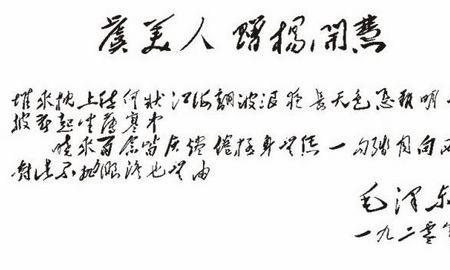 虞美人 贈楊開慧
堆来枕上愁何状江海翻波浪夜長天色怎难明
披衣起坐薄寒中
晓来百念皆灰烬倦极身无恁一勾残月向西
对此不抛眼泪也无由
毛泽东
一九二零年